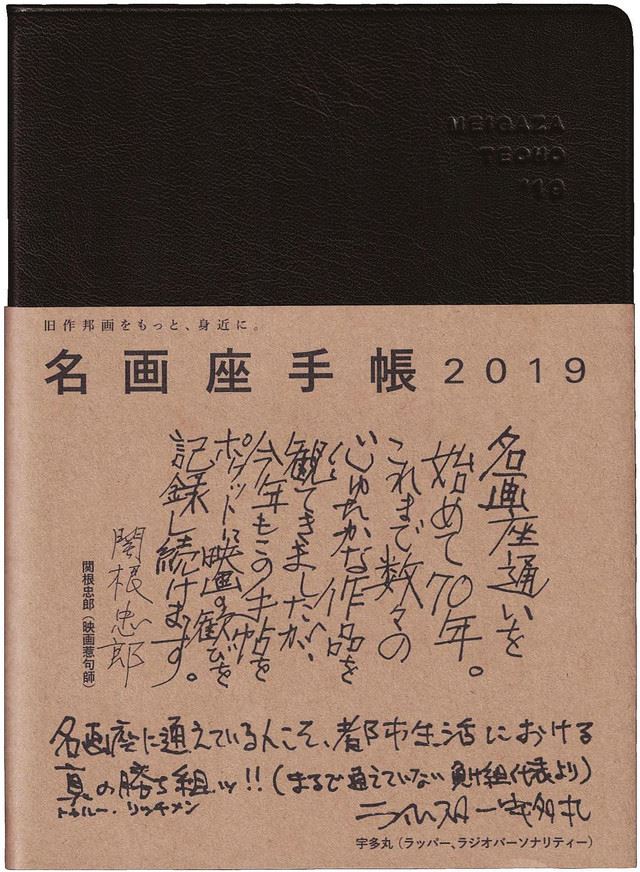 MEIGAZA
TECHO
'19
旧作邦画をもっと、身近に。
名画座手帳2019
名画座通いを
始めて70年。
これまで数々の
心ゆたかな作品を
観てきましたが、
今年もこの手帖を
ポケットに映画の歓びを
記録し続けます。
関根忠郎
関根忠郎（映画惹句師）
名画座に通えている人こそ、都市生活における
真の勝ち組ッ!!（まるで通えていない負け組代表より）
トゥルー・リッチメン
ライムスター宇多丸
宇多丸（ラッパー、ラジオパーソナリティー）